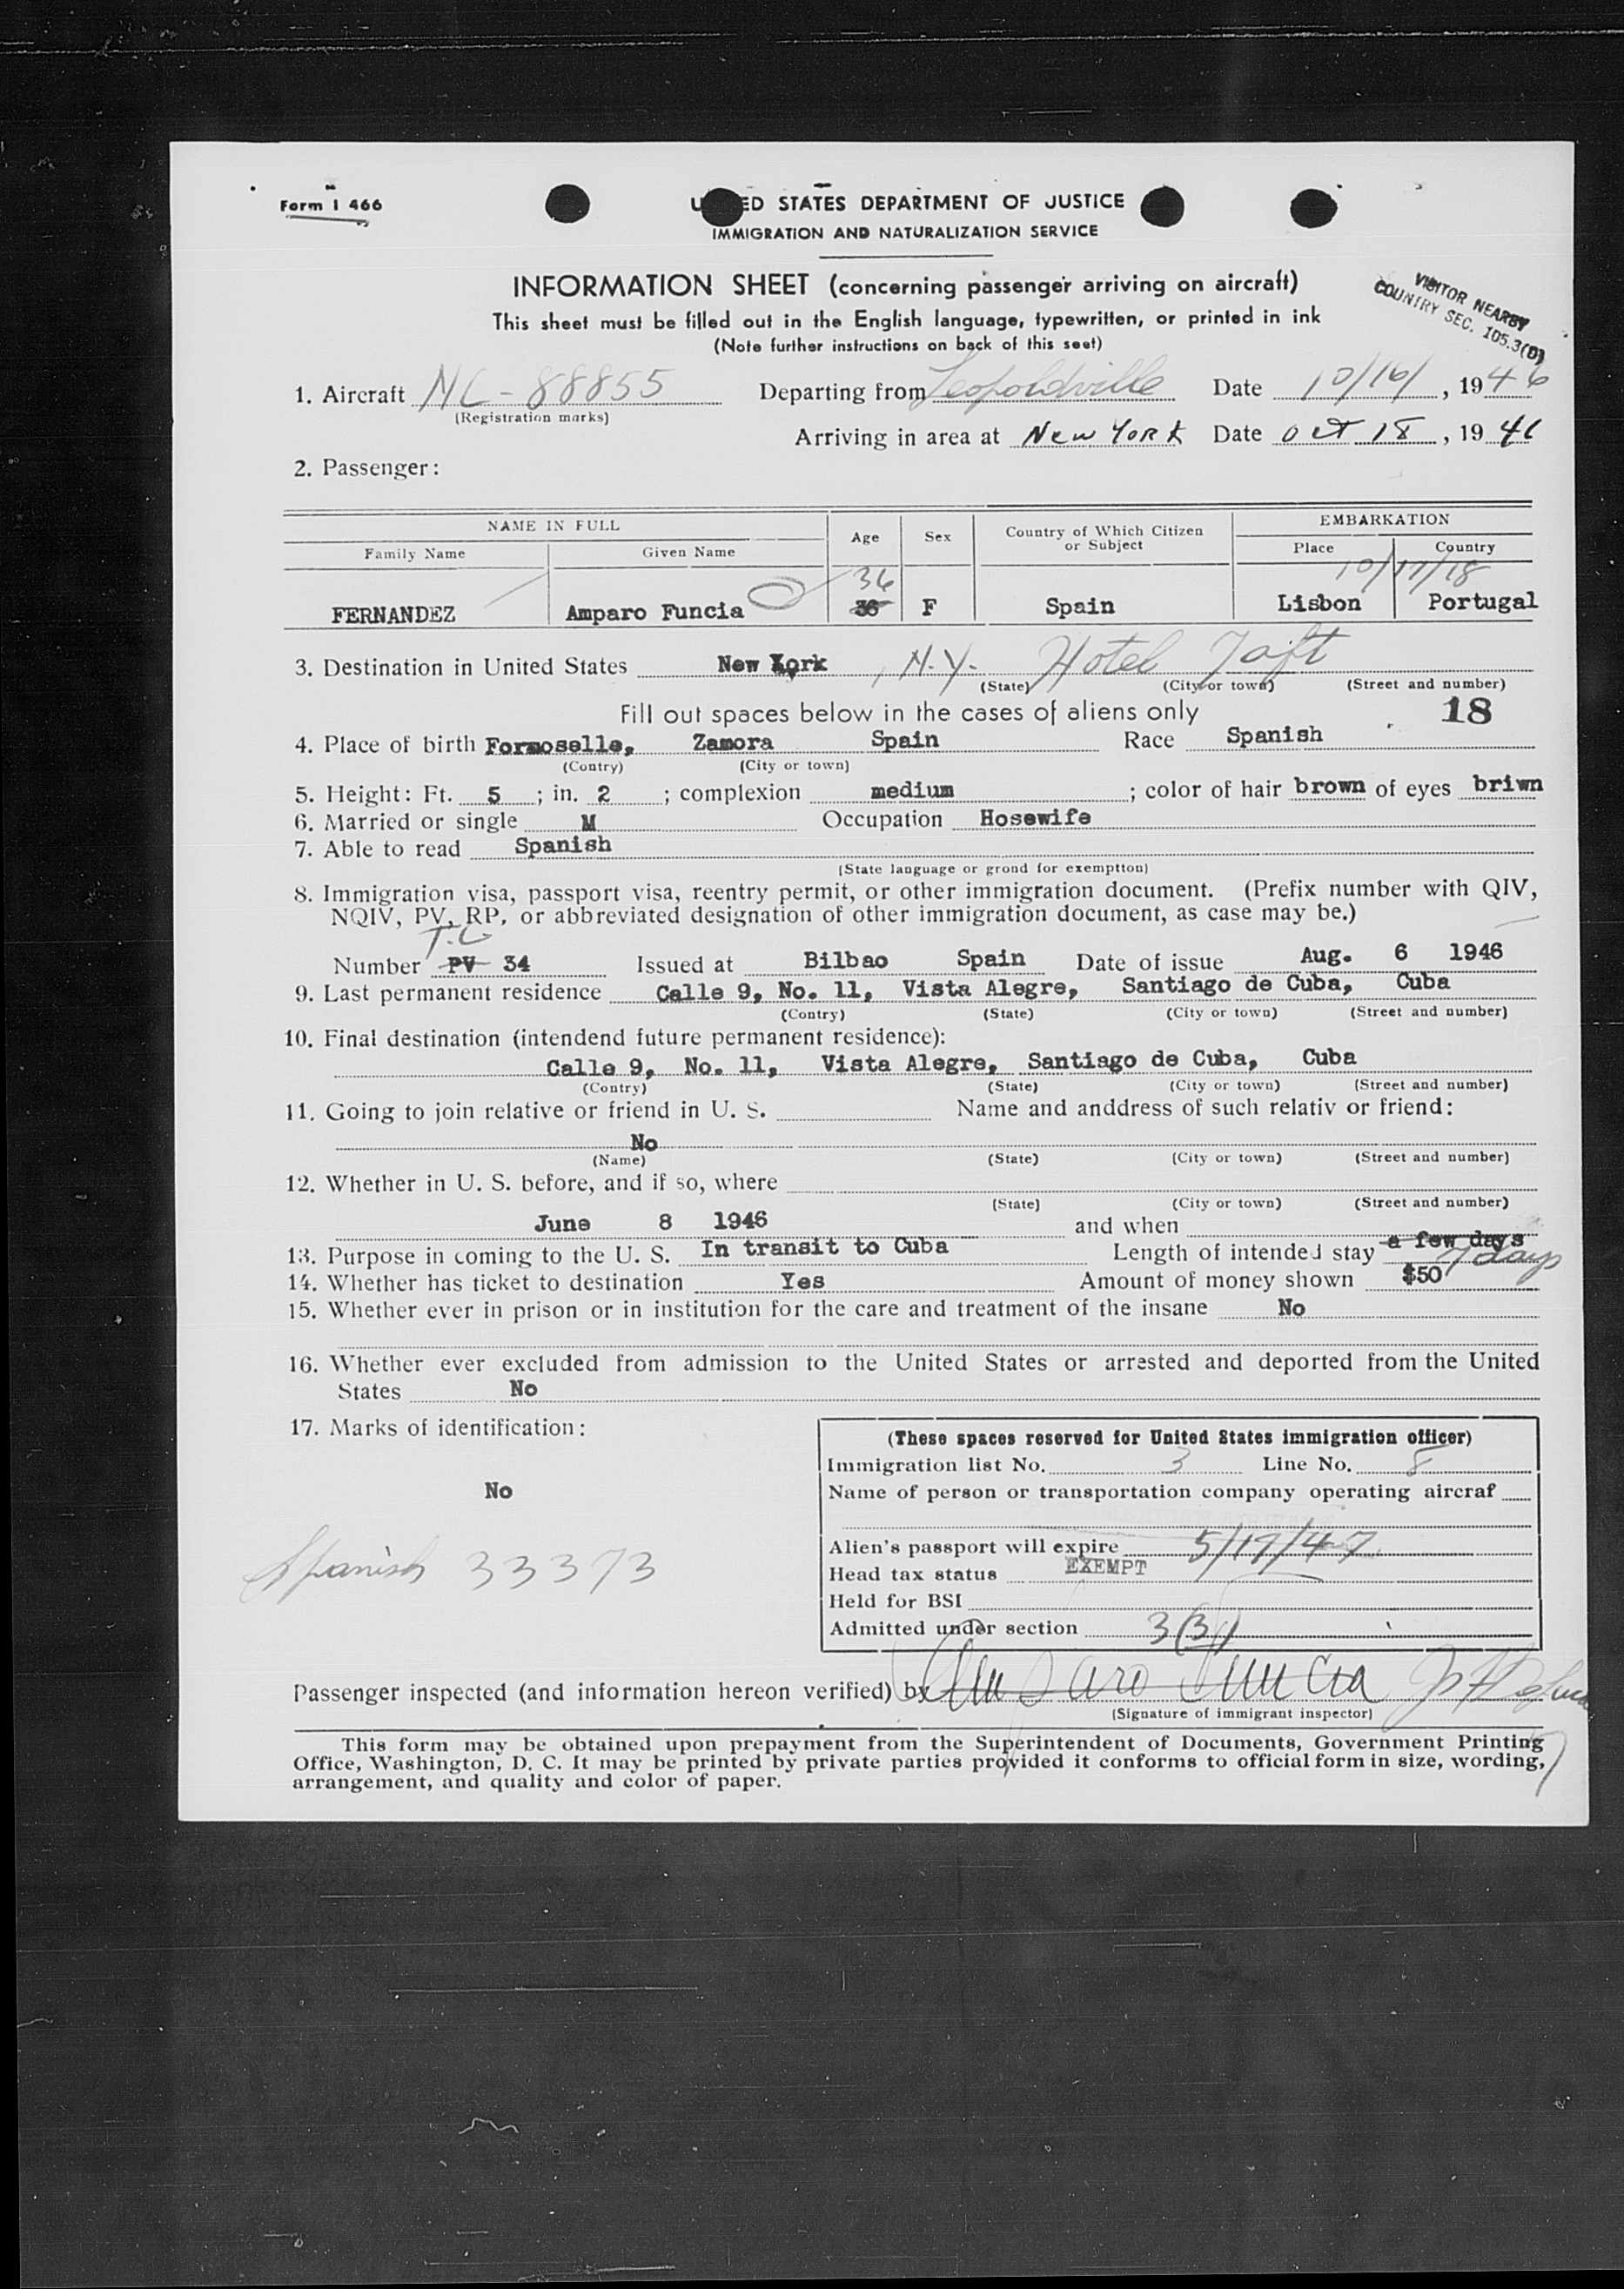 Form I 466
UNITED STATES DEPARTMENT OF JUSTICE
IMMIGRATION AND NATURALIZATION SERVICE
INFORMATION SHEET (concerning passenger arriving on aircraft)
This sheet must be filled out in the English language, typewritten, or printed in ink
(Note further instructions on back of this seet)
VISITOR NEARBY
COUNTRY SEC. 105.3(D)
1. Aircraft NC-88855 Departing from Leopoldville Date 10/16/, 1946
(Registration marks)
Arriving in area at New York Date Oct 18, 1946
2. Passenger:
NAME IN FULL Age Sex Country of Which Citizen or Subject EMBARKATION
Family Name Given Name Place Country
36 10/17/18
FERNANDEZ Amparo Funcia F Spain Lisbon Portugal
3. Destination in United States New York, N.Y. Hotel Taft
(State) (City or town) (Street and number)
Fill out spaces below in the cases of aliens only 18
4. Place of birth Formoselle, Zamora Spain Race Spanish
(Contry) (City or town)
5. Height: Ft. 5; in. 2; complexion medium; color of hair brown of eyes briwn
6. Married or single M Occupation Hosewife
7. Able to read Spanish
(State language or grond for exemption)
8. Immigration visa, passport visa, reentry permit, or other immigration document. (Prefix number with QIV,
NQIV, PV, RP, or abbreviated designation of other immigration document, as case may be.)
T.C.
Number PV 34 Issued at Bilbao Spain Date of issue Aug. 6 1946
9. Last permanent residence Calle 9, No. 11, Vista Alegre, Santiago de Cuba, Cuba
(Contry) (State) (City or town) (Street and number)
10. Final destination (intendend future permanent residence):
Calle 9, No. 11, Vista Alegre, Santiago de Cuba, Cuba
(Contry) (State) (City or town) (Street and number)
11. Going to join relative or friend in U. S. Name and anddress of such relativ or friend:
No
(Name) (State) (City or town) (Street and number)
12. Whether in U. S. before, and if so, where
(State) (City or town) (Street and number)
June 8 1946 and when
13. Purpose in coming to the U. S. In transit to Cuba Length of intended stay a few days 7 days
14. Whether has ticket to destination Yes Amount of money shown $50
15. Whether ever in prison or in institution for the care and treatment of the insane No
16. Whether ever excluded from admission to the United States or arrested and deported from the United
States No
17. Marks of identification:
No
Spanish 33373
(These spaces reserved for United States immigration officer)
Immigration list No. 3 Line No. 8
Name of person or transportation company operating aircraf
Alien's passport will expire 5/17/47
Head tax status EXEMPT
Held for BSI
Admitted under section 3(3)
Passenger inspected (and information hereon verified) by Amparo Funcia
(Signature of immigrant inspector)
This form may be obtained upon prepayment from the Superintendent of Documents, Government Printing
Office, Washington, D. C. It may be printed by private parties provided it conforms to official form in size, wording,
arrangement, and quality and color of paper.